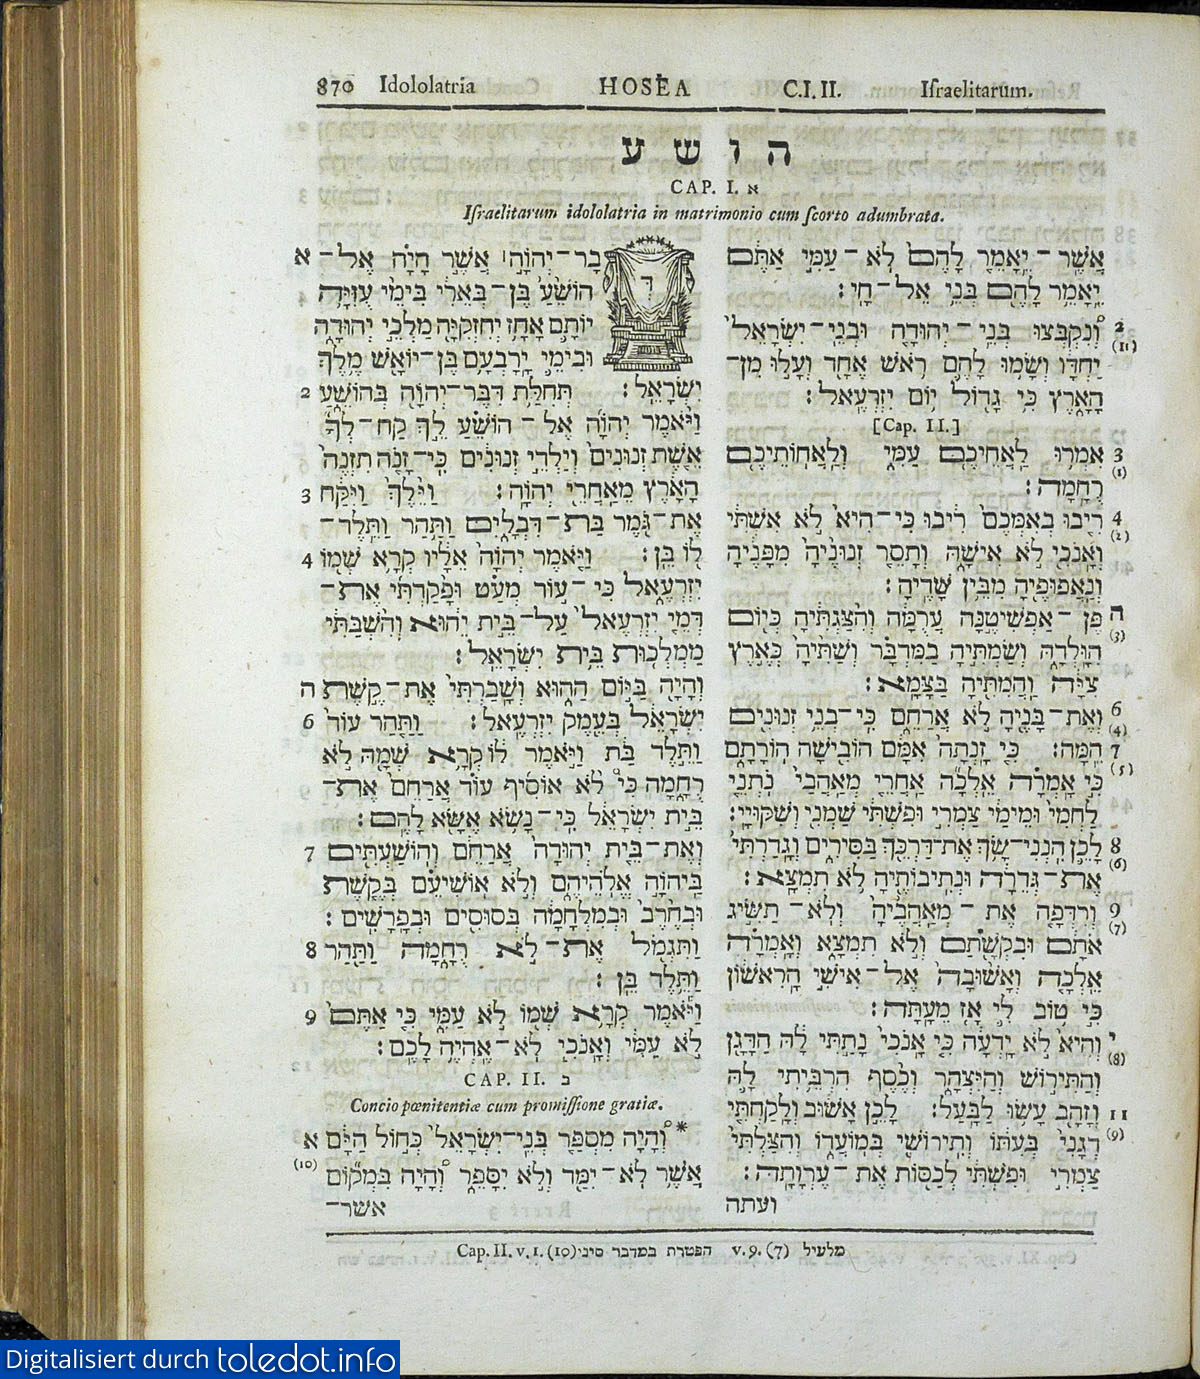 870 Idololatria HOSEA C.I.II. Iſraelitarum.
הושע
CAP. I. א
Iſraelitarum idololatria in matrimonio cum ſcorto adumbrata.
א דְּבַר־יְהוָה ׀ אֲשֶׁר הָיָה אֶל־
הוֹשֵׁעַ בֶּן־בְּאֵרִי בִּימֵי עֻזִּיָּה
יוֹתָם אָחָז יְחִזְקִיָּה מַלְכֵי יְהוּדָה
וּבִימֵי יָרָבְעָם בֶּן־יוֹאָשׁ מֶלֶךְ
2 יִשְׂרָאֵל׃ תְּחִלַּת דִּבֶּר־יְהוָה בְּהוֹשֵׁעַ
וַיֹּאמֶר יְהוָה אֶל־הוֹשֵׁעַ לֵךְ קַח־לְךָ
אֵשֶׁת זְנוּנִים וְיַלְדֵי זְנוּנִים כִּי־זָנֹה תִזְנֶה
3 הָאָרֶץ מֵאַחֲרֵי יְהוָה׃ וַיֵּלֶךְ וַיִּקַּח
אֶת־גֹּמֶר בַּת־דִּבְלָיִם וַתַּהַר וַתֵּלֶד־
4 לוֹ בֵּן׃ וַיֹּאמֶר יְהוָה אֵלָיו קְרָא שְׁמוֹ
יִזְרְעֶאל כִּי־עוֹד מְעַט וּפָקַדְתִּי אֶת־
דְּמֵי יִזְרְעֶאל עַל־בֵּית יֵהוּא וְהִשְׁבַּתִּי
מַמְלְכוּת בֵּית יִשְׂרָאֵל׃
ה וְהָיָה בַּיּוֹם הַהוּא וְשָׁבַרְתִּי אֶת־קֶשֶׁת
6 יִשְׂרָאֵל בְּעֵמֶק יִזְרְעֶאל׃ וַתַּהַר עוֹד
וַתֵּלֶד בַּת וַיֹּאמֶר לוֹ קְרָא שְׁמָהּ לֹא
רֻחָמָה כִּי לֹא אוֹסִיף עוֹד אֲרַחֵם אֶת־
בֵּית יִשְׂרָאֵל כִּי־נָשֹׂא אֶשָּׂא לָהֶם׃
7 וְאֶת־בֵּית יְהוּדָה אֲרַחֵם וְהוֹשַׁעְתִּים
בַּיהוָה אֱלֹהֵיהֶם וְלֹא אוֹשִׁיעֵם בְּקֶשֶׁת
וּבְחֶרֶב וּבְמִלְחָמָה בְּסוּסִים וּבְפָרָשִׁים׃
8 וַתִּגְמֹל אֶת־לֹא רֻחָמָה וַתַּהַר
וַתֵּלֶד בֵּן׃
9 וַיֹּאמֶר קְרָא שְׁמוֹ לֹא עַמִּי כִּי אַתֶּם
לֹא עַמִּי וְאָנֹכִי לֹא־אֶהְיֶה לָכֶם׃
CAP. II. ב
Concio pœnitentiæ cum promiſſione gratiæ.
א * וְהָיָה מִסְפַּר בְּנֵי־יִשְׂרָאֵל כְּחוֹל הַיָּם
(10) אֲשֶׁר לֹא־יִמַּד וְלֹא יִסָּפֵר וְהָיָה בִּמְקוֹם
אשר־
אֲשֶׁר־יֵאָמֵר לָהֶם לֹא־עַמִּי אַתֶּם
יֵאָמֵר לָהֶם בְּנֵי אֵל־חָי׃
2 (11) וְנִקְבְּצוּ בְּנֵי־יְהוּדָה וּבְנֵי־יִשְׂרָאֵל
יַחְדָּו וְשָׂמוּ לָהֶם רֹאשׁ אֶחָד וְעָלוּ מִן־
הָאָרֶץ כִּי גָדוֹל יוֹם יִזְרְעֶאל׃
[Cap. II.]
3 (1) אִמְרוּ לַאֲחֵיכֶם עַמִּי וְלַאֲחוֹתֵיכֶם
רֻחָמָה׃
4 (2) רִיבוּ בְאִמְּכֶם רִיבוּ כִּי־הִיא לֹא אִשְׁתִּי
וְאָנֹכִי לֹא אִישָׁהּ וְתָסֵר זְנוּנֶיהָ מִפָּנֶיהָ
וְנַאֲפוּפֶיהָ מִבֵּין שָׁדֶיהָ׃
ה (3) פֶּן־אַפְשִׁיטֶנָּה עֲרֻמָּה וְהִצַּגְתִּיהָ כְּיוֹם
הִוָּלְדָהּ וְשַׂמְתִּיהָ כַמִּדְבָּר וְשַׁתִּיהָ כְּאֶרֶץ
צִיָּה וַהֲמִתִּיהָ בַּצָּמָא׃
6 (4) וְאֶת־בָּנֶיהָ לֹא אֲרַחֵם כִּי־בְנֵי זְנוּנִים
7 הֵמָּה׃ כִּי זָנְתָה אִמָּם הוֹבִישָׁה הוֹרָתָם
(5) כִּי אָמְרָה אֵלְכָה אַחֲרֵי מְאַהֲבַי נֹתְנֵי
לַחְמִי וּמֵימַי צַמְרִי וּפִשְׁתִּי שַׁמְנִי וְשִׁקּוּיָי׃
8 (6) לָכֵן הִנְנִי־שָׂךְ אֶת־דַּרְכֵּךְ בַּסִּירִים וְגָדַרְתִּי
אֶת־גְּדֵרָהּ וּנְתִיבוֹתֶיהָ לֹא תִמְצָא׃
9 (7) וְרִדְּפָה אֶת־מְאַהֲבֶיהָ וְלֹא־תַשִּׂיג
אֹתָם וּבִקְשָׁתַם וְלֹא תִמְצָא וְאָמְרָה
אֵלְכָה וְאָשׁוּבָה אֶל־אִישִׁי הָרִאשׁוֹן
כִּי טוֹב לִי אָז מֵעָתָּה׃
י (8) וְהִיא לֹא יָדְעָה כִּי אָנֹכִי נָתַתִּי לָהּ הַדָּגָן
וְהַתִּירוֹשׁ וְהַיִּצְהָר וְכֶסֶף הִרְבֵּיתִי לָהּ
11 (9) וְזָהָב עָשׂוּ לַבָּעַל׃ לָכֵן אָשׁוּב וְלָקַחְתִּי
דְגָנִי בְּעִתּוֹ וְתִירוֹשִׁי בְּמוֹעֲדוֹ וְהִצַּלְתִּי
צַמְרִי וּפִשְׁתִּי לְכַסּוֹת אֶת־עֶרְוָתָהּ׃
ועתה
Cap. II. v. 1. (10) הפטרת במדבר סיני v. 9. (7) מלעיל
Digitalisiert durch toledot.info